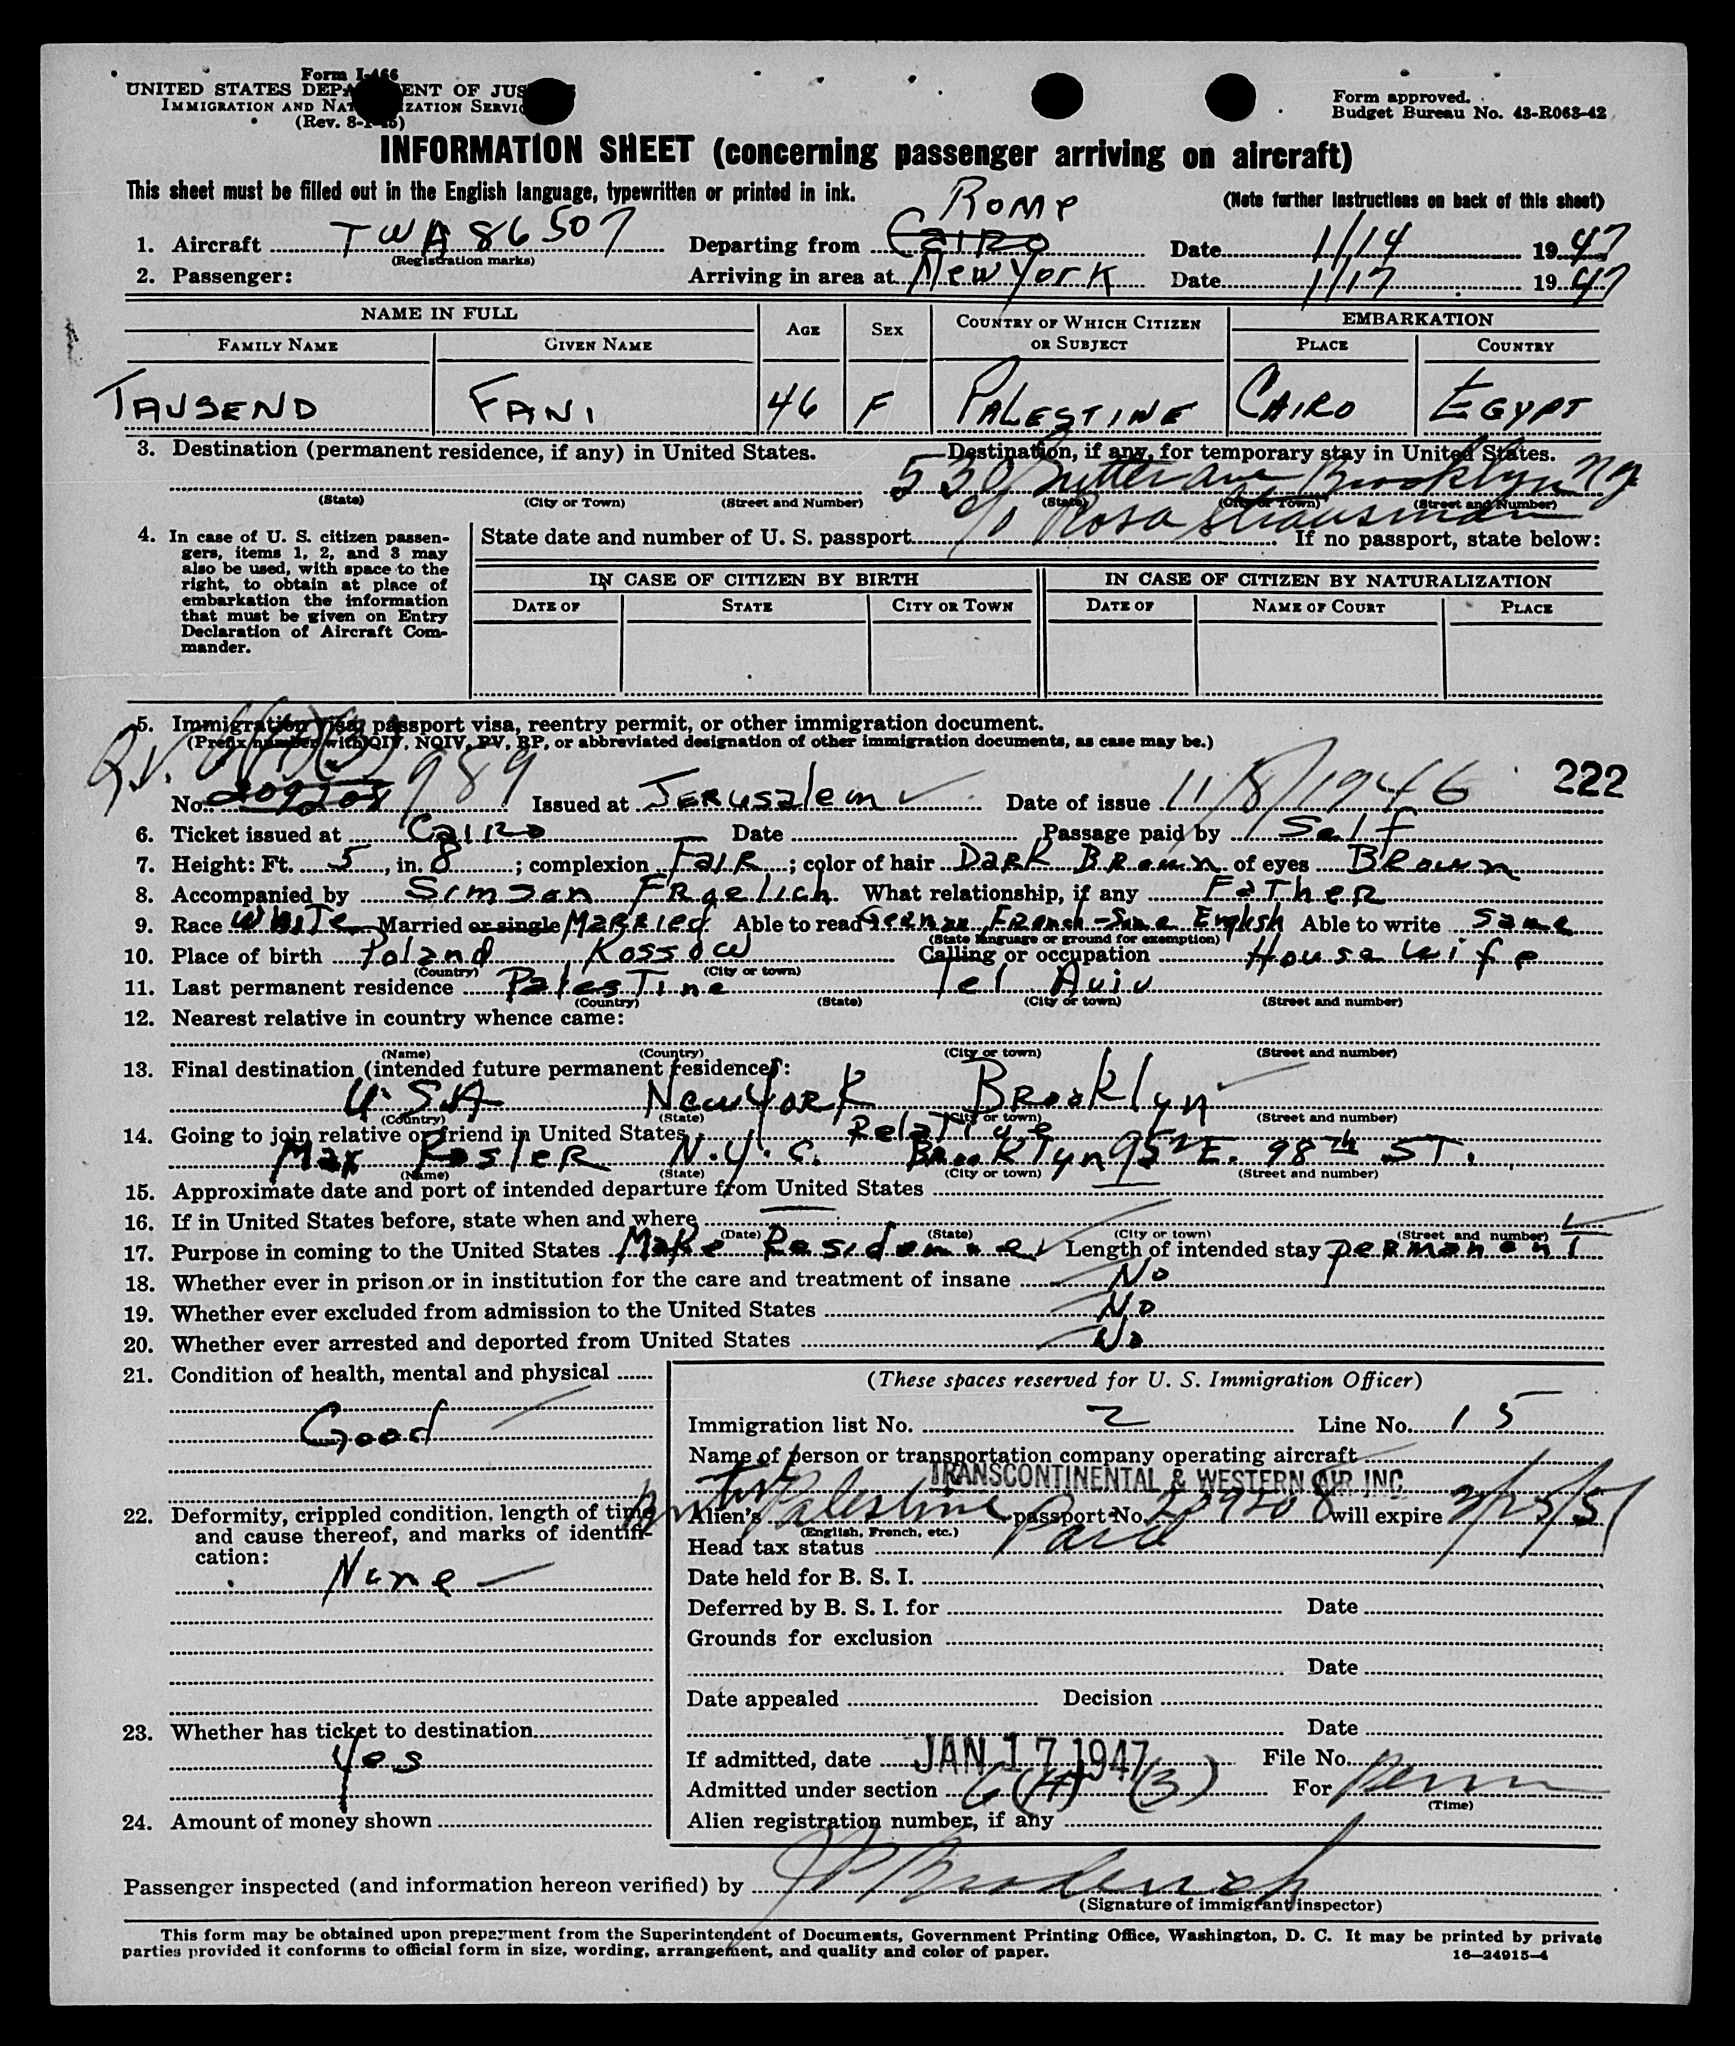 Form I-466
UNITED STATES DEPARTMENT OF JUSTICE
IMMIGRATION AND NATURALIZATION SERVICE
(Rev. 8-1-45)
Form approved.
Budget Bureau No. 43-R063-42
INFORMATION SHEET (concerning passenger arriving on aircraft)
This sheet must be filled out in the English language, typewritten or printed in ink.
(Note further instructions on back of this sheet)
Rome
1. Aircraft TWA 86507 Departing from Cairo Date 1/14 1947
(Registration marks)
2. Passenger: Arriving in area at New York Date 1/17 1947
NAME IN FULL AGE SEX COUNTRY OF WHICH CITIZEN OR SUBJECT EMBARKATION
FAMILY NAME GIVEN NAME PLACE COUNTRY
TAUSEND FANI 46 F PALESTINE CAIRO EGYPT
3. Destination (permanent residence, if any) in United States. Destination, if any, for temporary stay in United States.
530 Brooklyn NY
(State) (City or Town) (Street and Number) (State) (City or Town) (Street and Number)
c/o Rosa Strausman
4. In case of U. S. citizen passengers, items 1, 2, and 3 may also be used, with space to the right, to obtain at place of embarkation the information that must be given on Entry Declaration of Aircraft Commander.
State date and number of U. S. passport If no passport, state below:
IN CASE OF CITIZEN BY BIRTH IN CASE OF CITIZEN BY NATURALIZATION
DATE OF STATE CITY OR TOWN DATE OF NAME OF COURT PLACE
5. Immigration visa, passport visa, reentry permit, or other immigration document.
(Prefix number with QIV, NQIV, PV, RP, or abbreviated designation of other immigration documents, as case may be.)
Q.V. 6(A)(3)
No. 209208 989 Issued at Jerusalem Date of issue 11/8/1946 222
6. Ticket issued at Cairo Date Passage paid by Self
7. Height: Ft. 5, in. 8; complexion Fair; color of hair Dark Brown of eyes Brown
8. Accompanied by Simson Fraelich What relationship, if any Father
9. Race White Married or single Married Able to read German French-Some English Able to write Same
(State language or ground for exemption)
10. Place of birth Poland Kossow Calling or occupation Housewife
(Country) (City or town)
11. Last permanent residence Palestine Tel Aviv
(Country) (State) (City or town) (Street and number)
12. Nearest relative in country whence came:
(Name) (Country) (City or town) (Street and number)
13. Final destination (intended future permanent residence):
U.S.A New York Brooklyn
(Country) (State) (City or town) (Street and number)
14. Going to join relative or friend in United States Relative
Max Rosler N.Y.C. Brooklyn 95 E. 98th ST.
(Name) (State) (City or town) (Street and number)
15. Approximate date and port of intended departure from United States
16. If in United States before, state when and where
(Date) (State) (City or town) (Street and number)
17. Purpose in coming to the United States Make Residence Length of intended stay permanent
18. Whether ever in prison or in institution for the care and treatment of insane No
19. Whether ever excluded from admission to the United States No
20. Whether ever arrested and deported from United States No
21. Condition of health, mental and physical
Good
22. Deformity, crippled condition, length of time and cause thereof, and marks of identification:
None
23. Whether has ticket to destination
Yes
24. Amount of money shown
(These spaces reserved for U. S. Immigration Officer)
Immigration list No. 2 Line No. 15
Name of person or transportation company operating aircraft
TRANSCONTINENTAL & WESTERN AIR INC
Alien's British Palestine passport No. 209208 will expire 3/25/51
(English, French, etc.)
Head tax status Paid
Date held for B. S. I.
Deferred by B. S. I. for Date
Grounds for exclusion
Date
Date appealed Decision
Date
If admitted, date JAN 17 1947 File No.
Admitted under section 6(A)(3) For Perm
(Time)
Alien registration number, if any
Passenger inspected (and information hereon verified) by
(Signature of immigrant inspector)
This form may be obtained upon prepayment from the Superintendent of Documents, Government Printing Office, Washington, D. C. It may be printed by private
parties provided it conforms to official form in size, wording, arrangement, and quality and color of paper.
16—24915-4